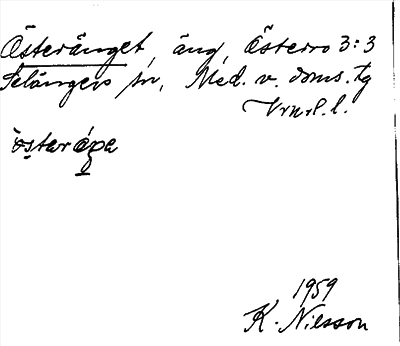 Österänget, äng, Österro 3:3
Selångers sn, Med. v. doms. tg
Vrnrl. l.
östaräŋe
1959
K. Nilsson